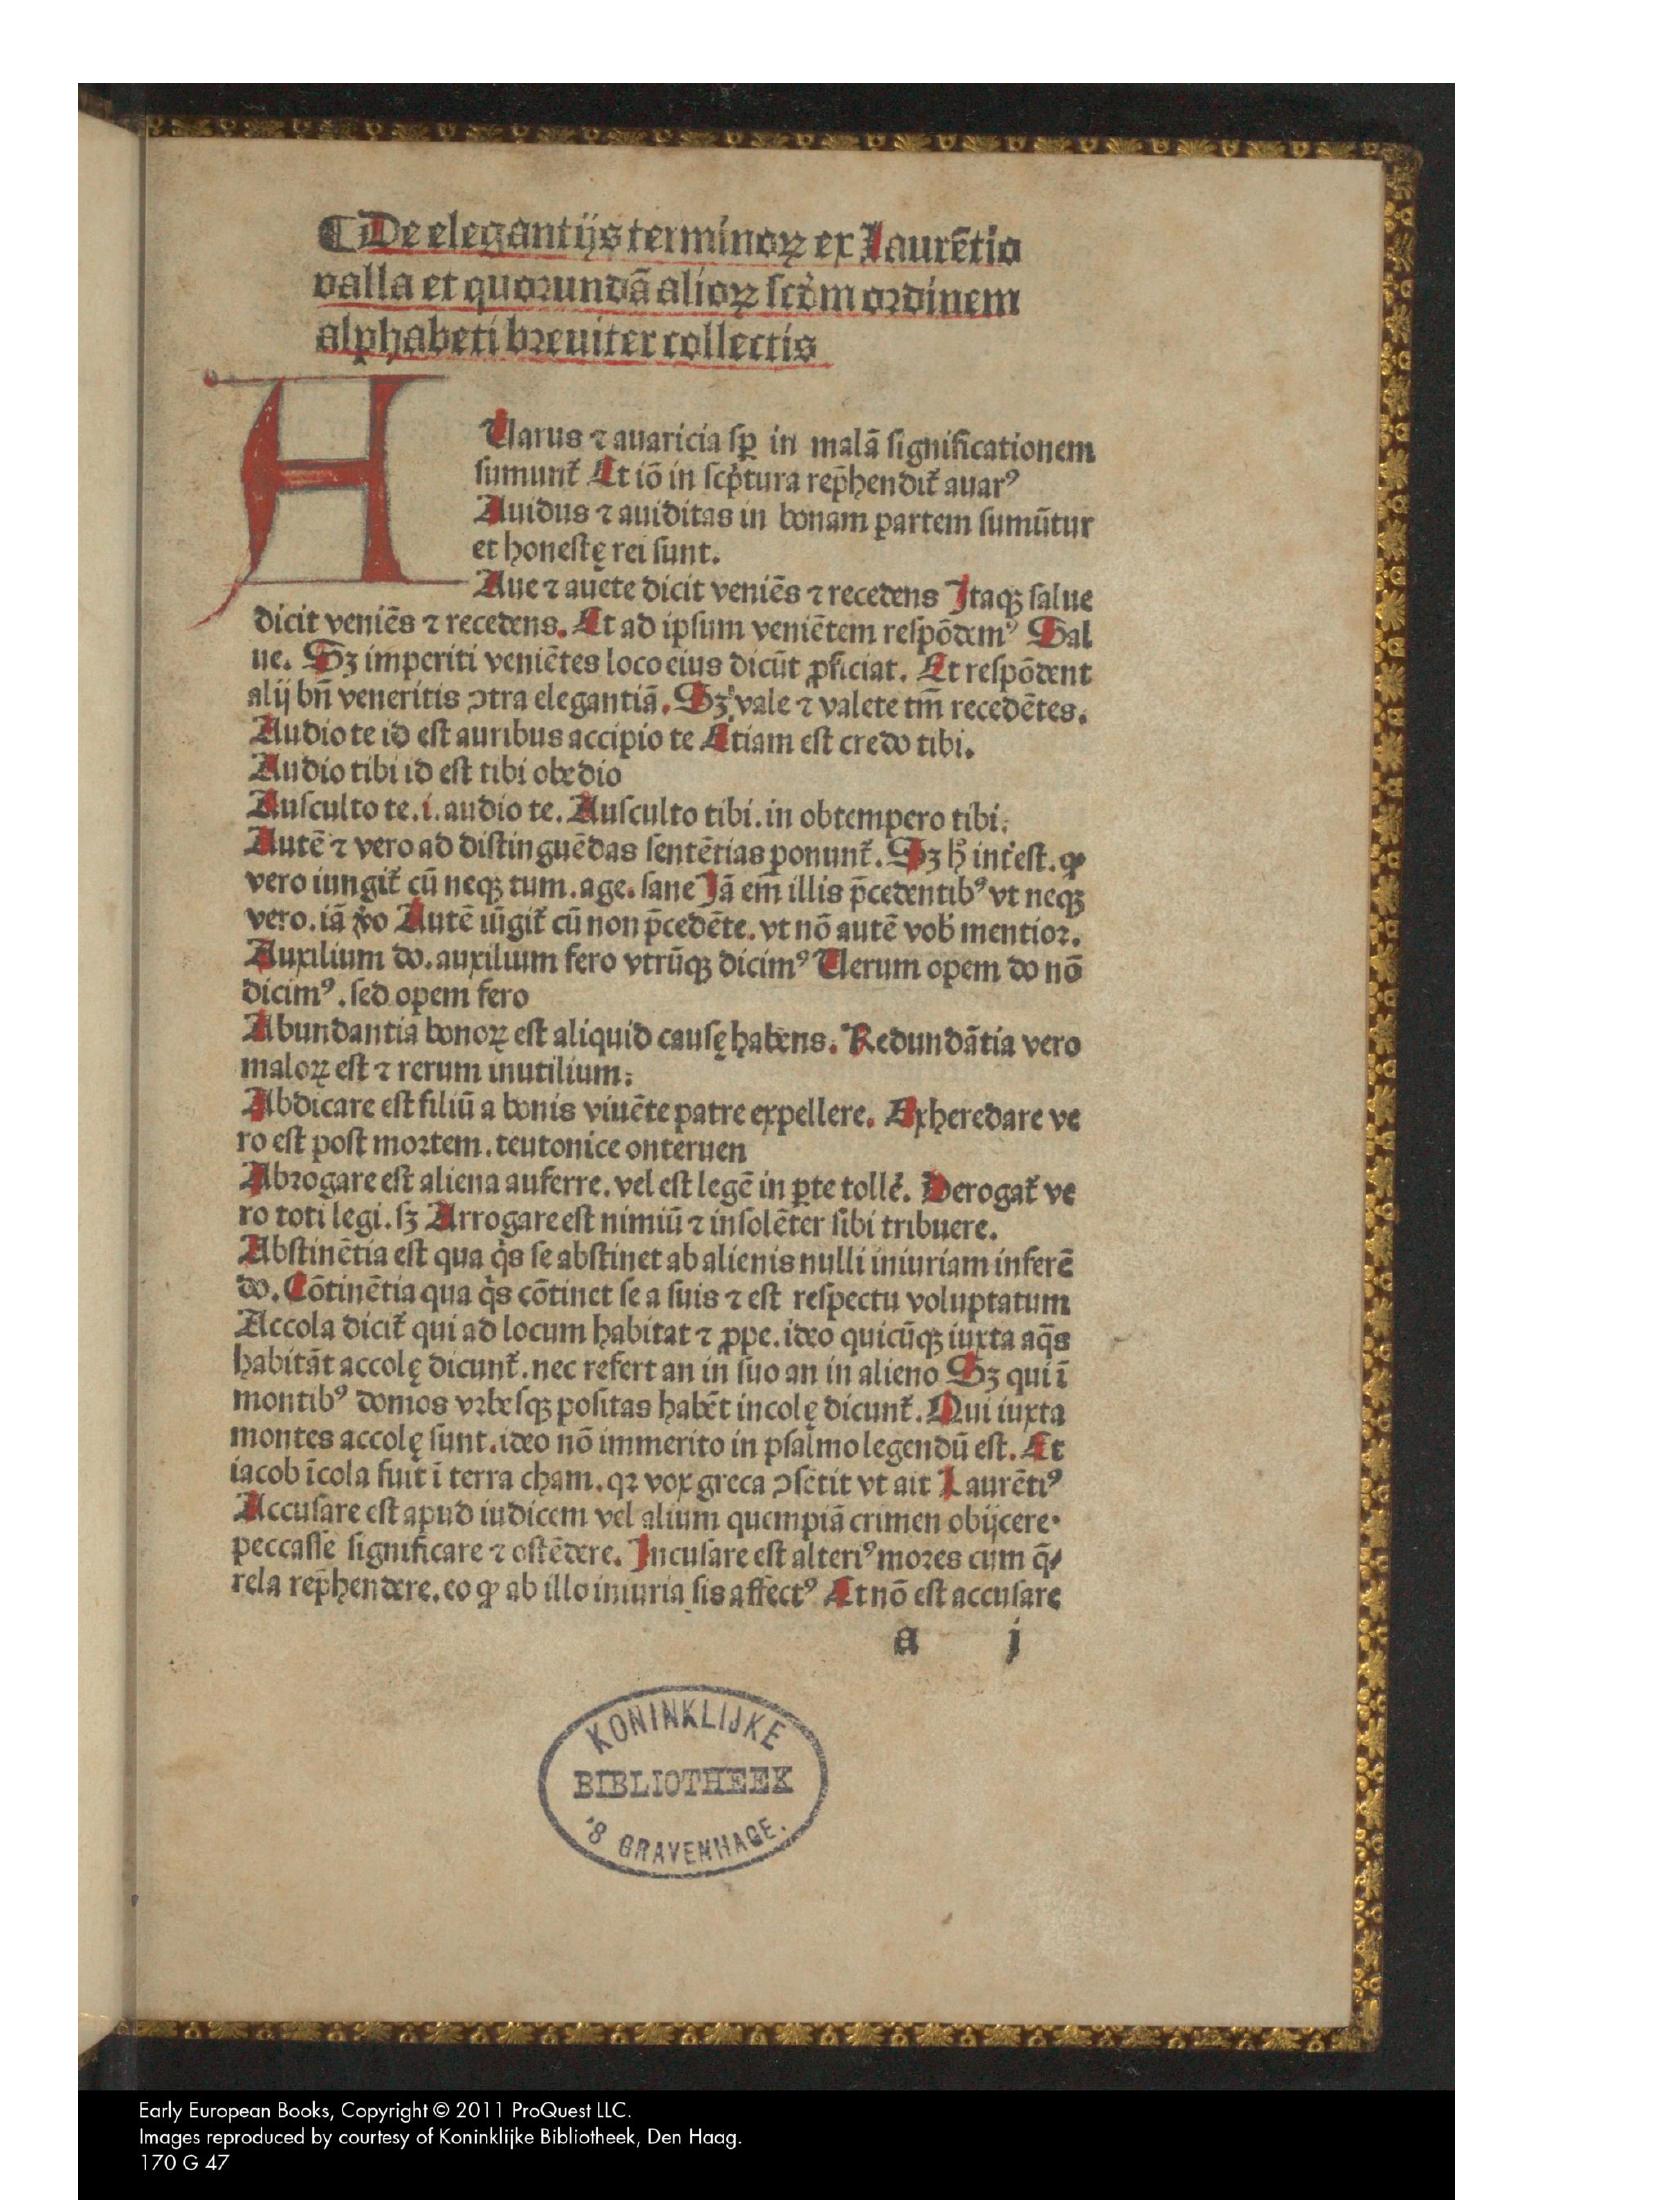 ¶De elegantijs terminoꝝ ex Laurētio
valla et quorundā alioꝝ scd̓m ordinem
alphabeti breuiter collectis
A
Uarus ⁊ auaricia sꝑ in malā significationem
sumunt᷑ Et iō in scp̓tura rep̄hendit᷑ auarꝰ
Auidus ⁊ auiditas in bonam partem sumūtur
et honestę rei sunt.
Aue ⁊ auete dicit veniēs ⁊ recedens Itaqꝫ salue
dicit veniēs ⁊ recedens. Et ad ipsum veniētem respōdemꝰ Sal
ue. Sꝫ imperiti veniētes loco eius dicūt ꝓficiat. Et respōdent
alij bn̄ veneritis ꝯtra elegantiā. Sꝫ vale ⁊ valete tm̄ recedētes.
Audio te id est auribus accipio te Etiam est credo tibi.
Audio tibi id est tibi obedio
Ausculto te.i.audio te. Ausculto tibi.in obtempero tibi.
Autē ⁊ vero ad distinguēdas sentētias ponunt᷑. Sꝫ hͦ int̓est. ꝙ
vero iungit᷑ cū neqꝫ tum.age.sane Iā em̄ illis p̄cedentibꝰ vt neqꝫ
vero.iā v̓o Autē iūgit᷑ cū non p̄cedēte.vt nō autē vob̓ mentior.
Auxilium do.auxilium fero vtrūqꝫ dicimꝰ Uerum opem do nō
dicimꝰ.sed opem fero
Abundantia bonoꝝ est aliquid causę habens. Redundātia vero
maloꝝ est ⁊ rerum inutilium.
Abdicare est filiū a bonis viuēte patre expellere. Exheredare ve
ro est post mortem.teutonice onteruen
Abrogare est aliena auferre.vel est legē in ꝑte toll̓e. Derogat᷑ ve
ro toti legi.sꝫ Arrogare est nimiū ⁊ insolēter sibi tribuere.
Abstinētia est qua q̓s se abstinet ab alienis nulli iniuriam inferē
do. Cōtinētia qua q̓s cōtinet se a suis ⁊ est respectu voluptatum
Accola dicit᷑ qui ad locum habitat ⁊ ꝓpe.ideo quicūqꝫ iuxta aq̄s
habitāt accolę dicunt᷑.nec refert an in suo an in alieno Sꝫ qui ī
montibꝰ domos vrbesqꝫ positas habēt incolę dicunt᷑. Qui iuxta
montes accolę sunt.ideo nō immerito in psalmo legendū est. Et
iacob īcola fuit ī terra cham.qꝛ vox greca ꝯsētit vt ait Laurētiꝰ
Accusare est apud iudicem vel alium quempiā crimen obijcere.
peccasse significare ⁊ ostēdere. Incusare est alteriꝰ mores cum q̄⸗
rela rep̄hendere.eo ꝙ ab illo iniuria sis affectꝰ Et nō est accusare
a j
KONINKLIJKE
BIBLIOTHEEK
'S GRAVENHAGE.
Early European Books, Copyright © 2011 ProQuest LLC.
Images reproduced by courtesy of Koninklijke Bibliotheek, Den Haag.
170 G 47